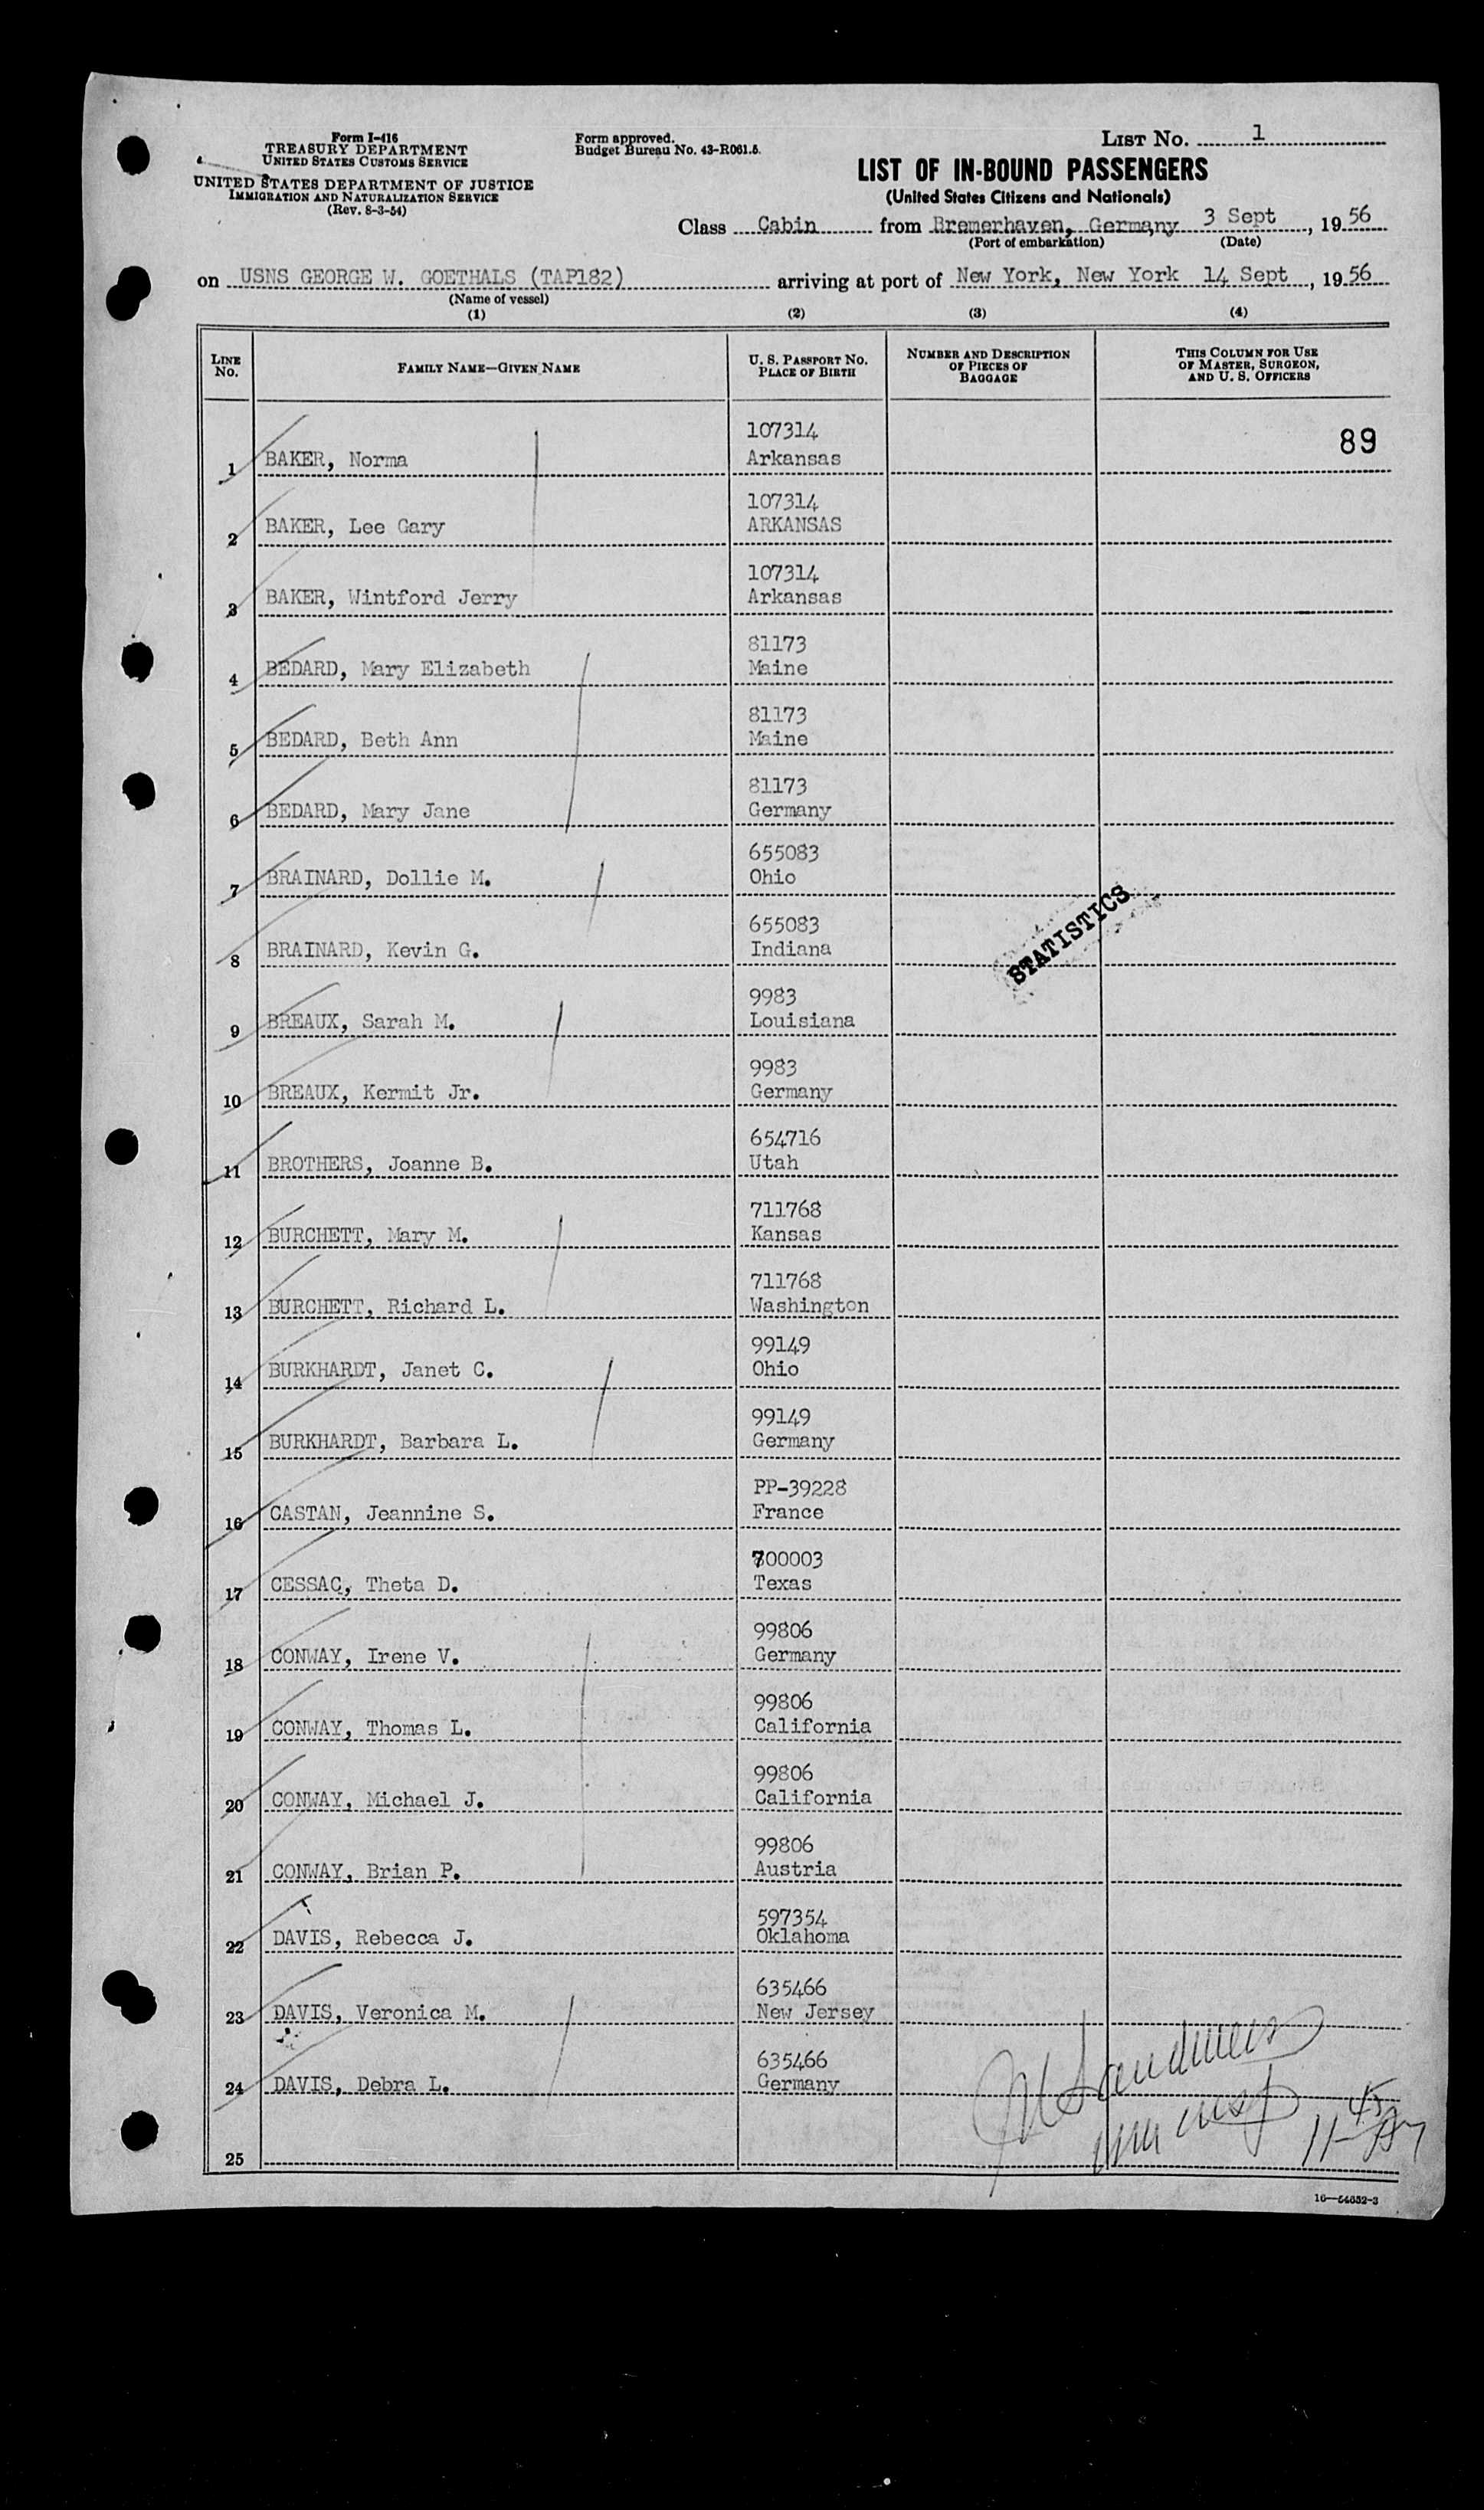 Form I-416
TREASURY DEPARTMENT
UNITED STATES CUSTOMS SERVICE
UNITED STATES DEPARTMENT OF JUSTICE
IMMIGRATION AND NATURALIZATION SERVICE
(Rev. 8-3-54)
Form approved.
Budget Bureau No. 43-R061.5.
LIST NO. 1
LIST OF IN-BOUND PASSENGERS
(United States Citizens and Nationals)
Class Cabin from Bremerhaven, Germany 3 Sept, 1956
(Port of embarkation) (Date)
on USNS GEORGE W. GOETHALS (TAP182) arriving at port of New York, New York 14 Sept, 1956
(Name of vessel)
(1) (2) (3) (4)
LINE NO. FAMILY NAME—GIVEN NAME U. S. PASSPORT NO. PLACE OF BIRTH NUMBER AND DESCRIPTION OF PIECES OF BAGGAGE THIS COLUMN FOR USE OF MASTER, SURGEON, AND U. S. OFFICERS
89
1 BAKER, Norma 107314 Arkansas
2 BAKER, Lee Gary 107314 ARKANSAS
3 BAKER, Wintford Jerry 107314 Arkansas
4 BEDARD, Mary Elizabeth 81173 Maine
5 BEDARD, Beth Ann 81173 Maine
6 BEDARD, Mary Jane 81173 Germany
7 BRAINARD, Dollie M. 655083 Ohio
STATISTICS
8 BRAINARD, Kevin G. 655083 Indiana
9 BREAUX, Sarah M. 9983 Louisiana
10 BREAUX, Kermit Jr. 9983 Germany
11 BROTHERS, Joanne B. 654716 Utah
12 BURCHETT, Mary M. 711768 Kansas
13 BURCHETT, Richard L. 711768 Washington
14 BURKHARDT, Janet C. 99149 Ohio
15 BURKHARDT, Barbara L. 99149 Germany
16 CASTAN, Jeannine S. PP-39228 France
17 CESSAC, Theta D. 700003 Texas
18 CONWAY, Irene V. 99806 Germany
19 CONWAY, Thomas L. 99806 California
20 CONWAY, Michael J. 99806 California
21 CONWAY, Brian P. 99806 Austria
22 DAVIS, Rebecca J. 597354 Oklahoma
23 DAVIS, Veronica M. 635466 New Jersey
24 DAVIS, Debra L. 635466 Germany
25
16—54652-3